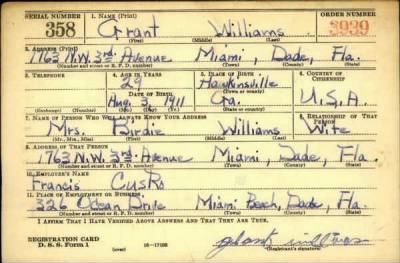 SERIAL NUMBER 1. NAME (Print) ORDER NUMBER
358 Grant Williams 3939
(First) (Middle) (Last)
2. ADDRESS (Print)
1763 N.W. 3rd Avenue Miami, Dade, Fla.
(Number and street or R. F. D. number) (Town) (County) (State)
3. TELEPHONE 4. AGE IN YEARS 5. PLACE OF BIRTH 6. COUNTRY OF CITIZENSHIP
29 Hawkinsville
DATE OF BIRTH (Town or county)
Aug. 3 1911 Ga. U.S.A.
(Exchange) (Number) (Mo.) (Day) (Yr.) (State or country)
7. NAME OF PERSON WHO WILL ALWAYS KNOW YOUR ADDRESS 8. RELATIONSHIP OF THAT PERSON
Mrs. Birdie Williams Wife
(Mr., Mrs., Miss) (First) (Middle) (Last)
9. ADDRESS OF THAT PERSON
1763 N.W. 3rd Avenue Miami, Dade, Fla.
(Number and street or R. F. D. number) (Town) (County) (State)
10. EMPLOYER'S NAME
Francis
11. PLACE OF EMPLOYMENT OR BUSINESS
326 Ocean Drive Miami Beach, Dade, Fla.
(Number and street or R. F. D. number) (Town) (County) (State)
I AFFIRM THAT I HAVE VERIFIED ABOVE ANSWERS AND THAT THEY ARE TRUE.
REGISTRATION CARD
D. S. S. Form 1 (over) 16—17105 (Registrant's signature)